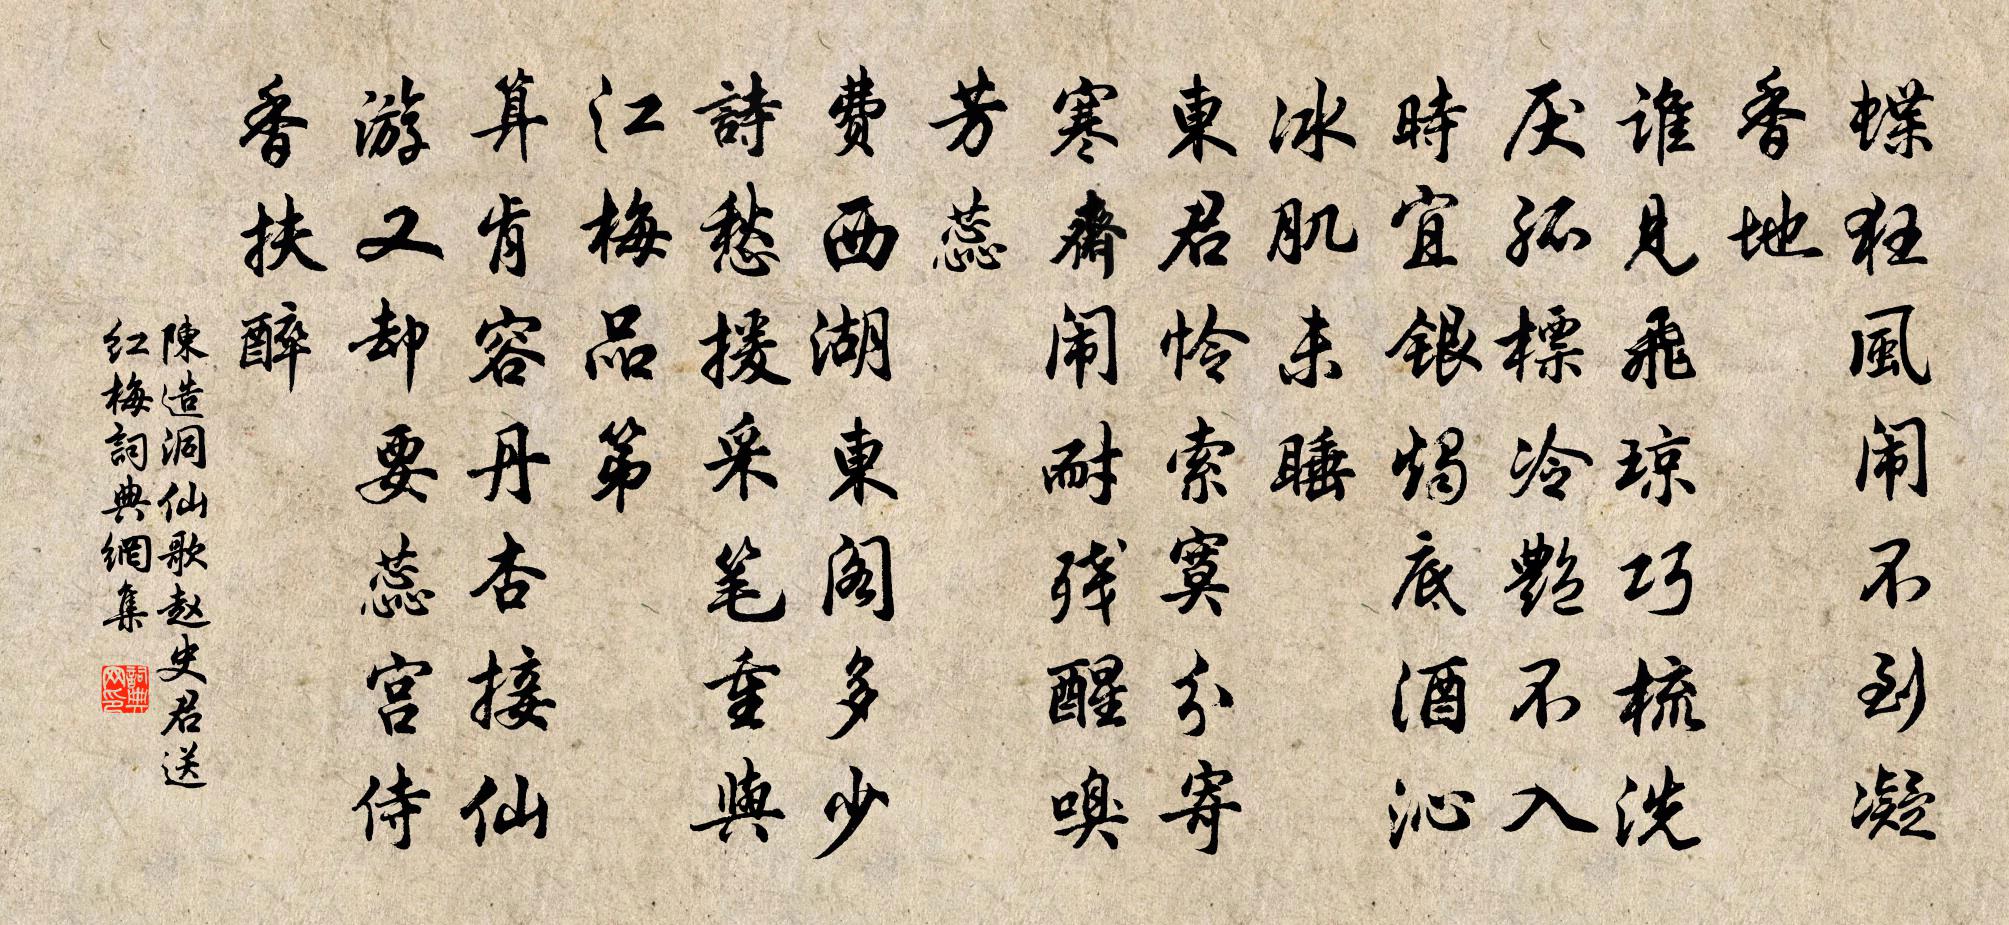 蝶狂風闹不到凝
香地
谁見飛琼巧梳洗
厌孤標冷艶不入
時宜銀燭底酒沁
冰肌未睡
東君怜索寞分寄
寒齋闹耐残醒嗅
芳蕊
費西湖東阁多少
詩愁援采笔重與
江梅品第
算肯容丹杏接仙
游又却要蕊宫侍
香扶醉
陳造洞仙歌赵史君送
红梅詞典網集
詞典
网印